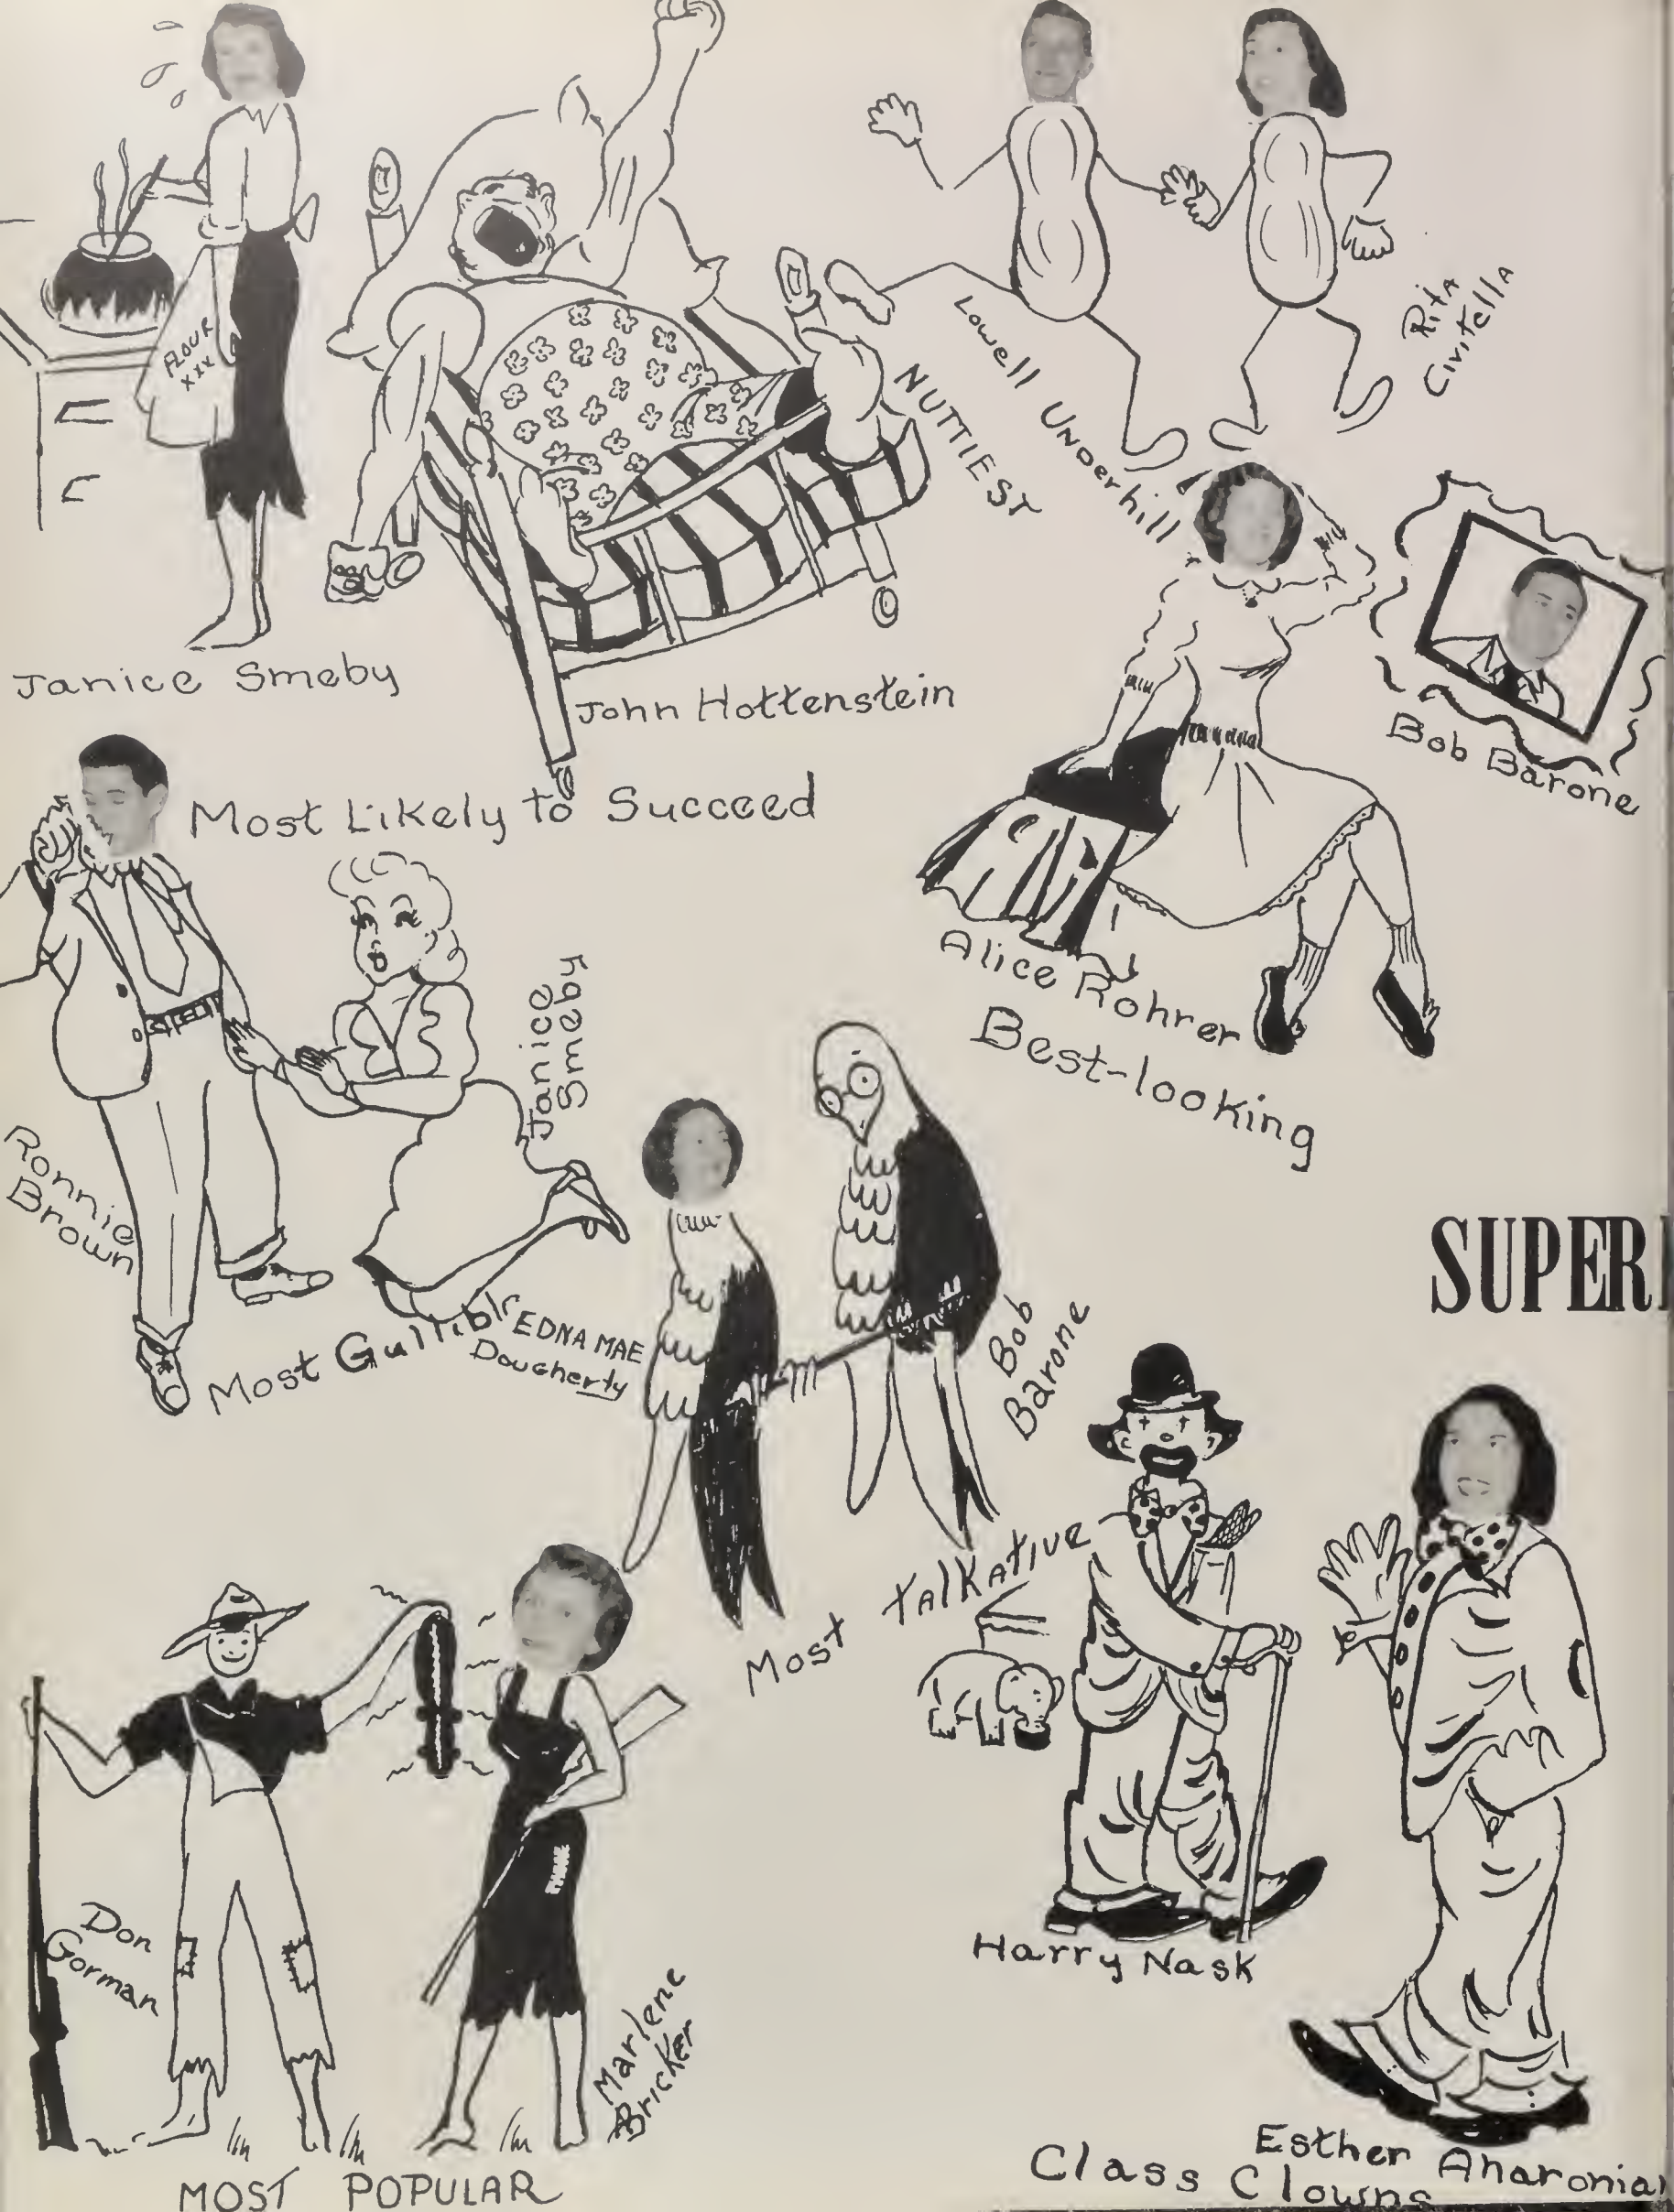 FLOUR
XXX
Janice Smeby
John Hottenstein
Most Likely to Succeed
Lowell Underhill
NUTTIEST
Rita
Civitella
Bob Barone
Alice Rohrer
Best-looking
Ronnie
Brown
Janice
Smeby
Most Gullible
EDNA MAE
Dougherty
Bob
Barone
Most TALKATIVE
SUPER
Don
Gorman
Marlene
Bricker
MOST POPULAR
Harry Nask
Esther Aharonian
Class Clowns